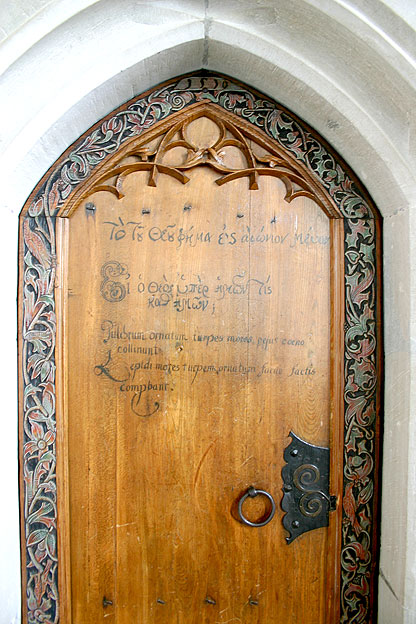 Τὸ τ͂υ Θε͂υ ῥῆμα εἰς αἰώνιον μένει
Εἰ ὁ Θεὸς ὑπὲρ ἡμῶν τίς
καθ' ἡμῶν;
Pulchrum ornatum turpes mores, pejus coeno
collinunt.
Lepidi mores turpem, ornatum facile factis
comprobant.